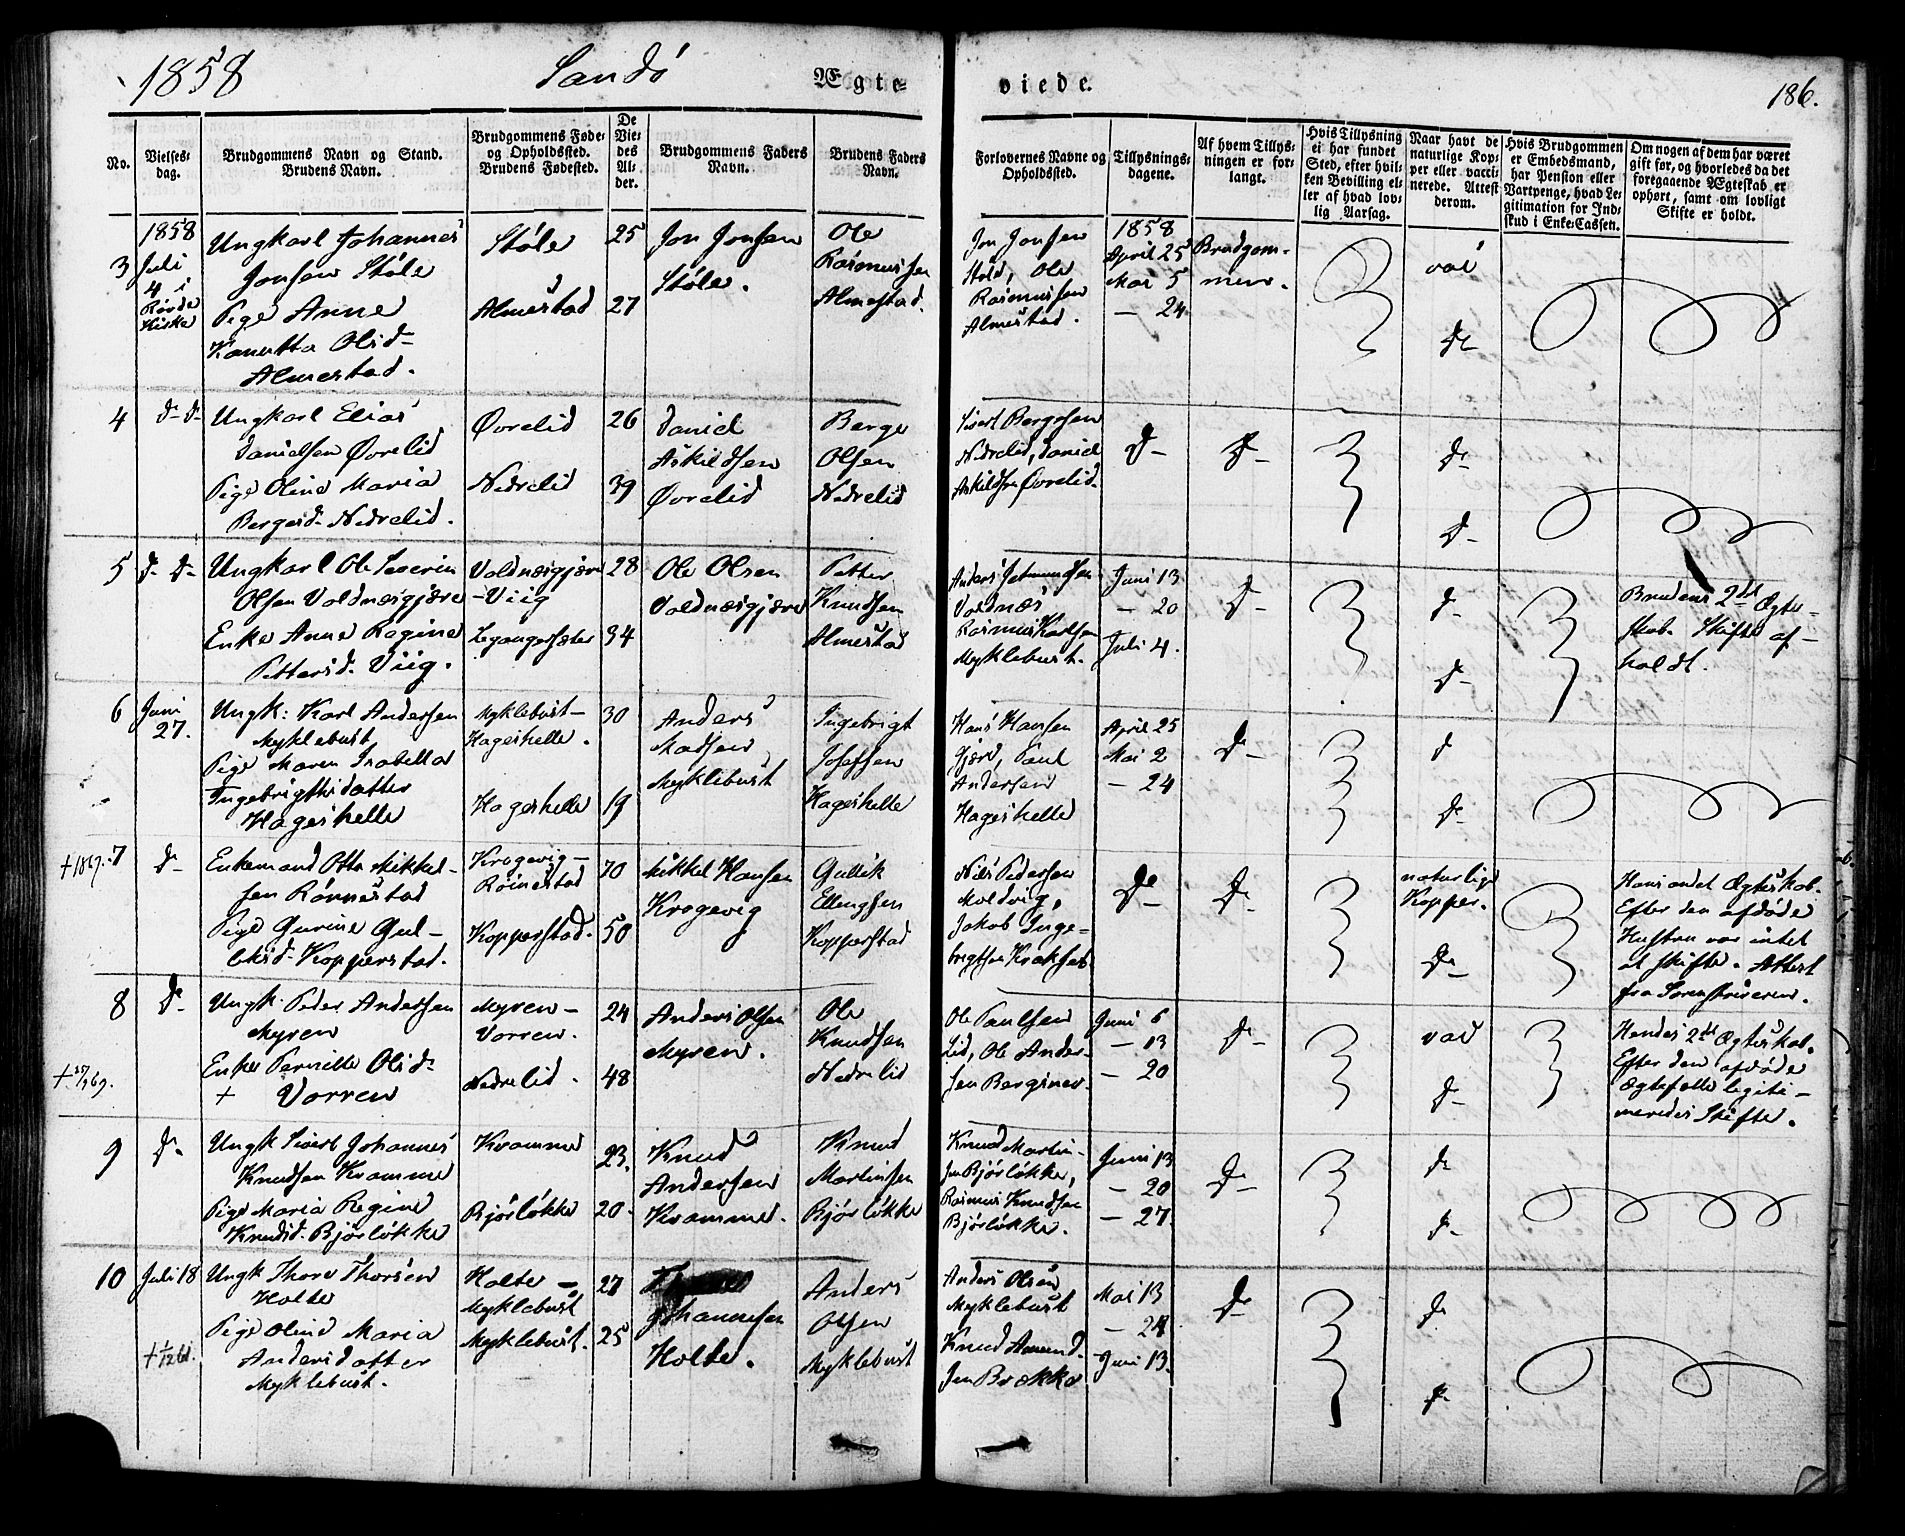 1858 Sandö Ægteviede. 186.
No. Vielsesdag. Brudgommens Navn og Stand. Brudens Navn. Brudgommens Føde- og Opholdssted. Brudens Fødested. De Viedes Alder. Brudgommens Faders Navn. Brudens Faders Navn. Forlovernes Navne og Opholdssted. Tillysningsdagene. Af hvem Tillysningen er forlangt. Hvis Tillysning ei har fundet Sted, efter hvilken Bevilling eller af hvad lovlig Aarsag. Naar havt de naturlige Kopper eller vaccinerede. Attest derom. Hvis Brudgommen er Embedsmand, har Pension eller Vartpenge, hvad Legitimation for Indskud i Enke-Cassen. Om nogen af dem har været gift før, og hvorledes da det foregaaende Ægteskab er ophørt, samt om lovligt Skifte er holdt.
3 1858 Juli 4 i
Ungkarl Johannes Jonsen Støle
Pige Anne Olsd- Almestad.
Støle
Almestad
25
27
Jon Jonsen Støle.
Ole Rasmussen Almestad.
Jon Jonsen Støle, Ole Rasmussen Almestad.
1858 April 25 Mai 5 — 24
Brudgommen.
vac
Do
4 Do Do
Ungkarl Elias Danielsen Øvrelid
Pige Oline Maria Bergesd- Nedrelid.
Øvrelid
Nedrelid
26
39
Daniel Askildsen Øvrelid
Berge Olsen Nedrelid
Sivert Bergesen Nedrelid, Daniel Askildsen Øvrelid.
Do
Do
Do
Do
5 Do Do
Ungkarl Ole Severin Olsen Voldnæsgjære
Enke Anne Regine Pettersd. Viig.
Voldnæsgjære -Viig
Legangersæter
28
34
Ole Olsen Voldnæsgjære
Petter Knudsen Almestad
Anders Voldnæs Rasmus Karlsen Myklebust.
Juni 13 — 20 Juli 4.
Do
Do
Do
Brudens 2det Ægteskab. Skifte afholdt.
6 Juni 27.
Ungk: Karl Andersen Myklebust
Pige Maren Isabella Ingebrigtsdatter Hageskelle
Myklebust- Hageskelle.
Hageskelle
30
19
Anders Madsen Myklebust
Ingebrigt Josefsen Hageskelle
Hans Hansen Gjære, Paul Andersen Hageskelle
April 25 Mai 2 — 24
Do
Do
Do
+1867. 7 Do
Enkemand Otto Mikkelsen Rönnestad
Pige Gurine Gulleksd- Kopperstad.
Krogevig- Rönnestad
Kopperstad.
70
50
Mikkel Hansen Krogevig
Gullik Ellingsen Kopperstad
Nils Pedersen Moldvig, Jakob Ingebrigtsen
Do
Do
naturlige Kopper.
Do
Hans andet Ægteskab. Efter den afdöde Hustru var intet at skifte. Attest fra Sorenskriveren.
8 Do
Ungk. Peder Andersen Myren
Enke Pernille Olsd- + Vorren
Myren- Vorren.
Nedrelid.
24
48
Anders Olsen Myren.
Ole Knudsen Nedrelid
Ole Paulsen Lid, Ole Andersen
Juni 6 — 13 — 20
Do
vac
Do
Hendes 2det Ægteskab. Efter den afdöde Ægtefælle legitimeredes Skifte.
9 Do
Ungk Sivert Johannes Knudsen Kvamme
Pige Maria Regine Knudsd. Bjørløkke
Kvamme
Bjørløkke
23.
20.
Knud Andersen Kvamme.
Knud Martinsen Bjørløkke
Knud Martinsen Bjørløkke, Rasmus Knudsen Bjørløkke.
Juni 13 — 20 — 27.
Do
Do
Do
10 Juli 18
Ungk Thore Thorsen Holte
Pige Oline Maria Andersdatter Myklebust.
Holte - Myklebust
Myklebust.
27
25
Johannesen Holte.
Anders Olsen Myklebust
Anders Olsen Myklebust Knud Amundsen Brække
Mai 13 — 24 Juni 13.
Do
Do
Do